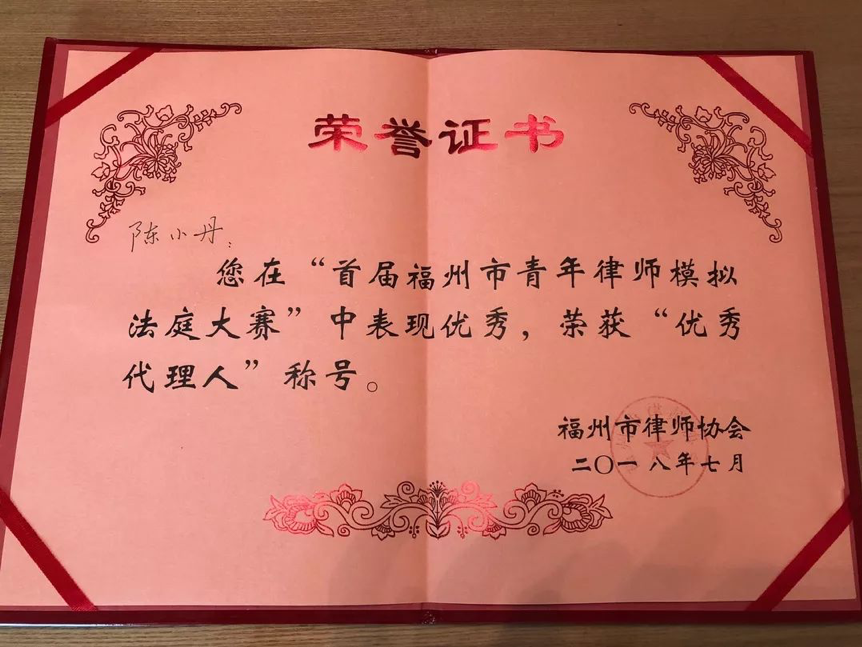 荣誉证书
陈小丹：
您在“首届福州市青年律师模拟
法庭大赛”中表现优秀，荣获“优秀
代理人”称号。
福州市律师协会
二〇一八年七月